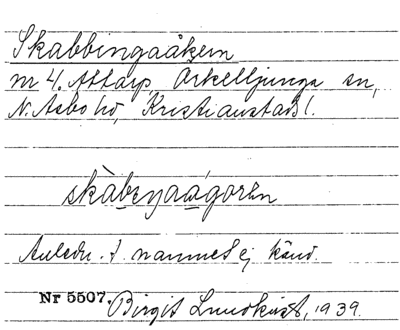 Skabbingaåkern
nr 4. Attarp, Örkelljunga sn,
N. Åsbo hd, Kristianstads l.
skàbeŋaa̱góren
Anledn. t. namnet ej känd.
Nr 5507. Birgit Lundkvist, 1939.